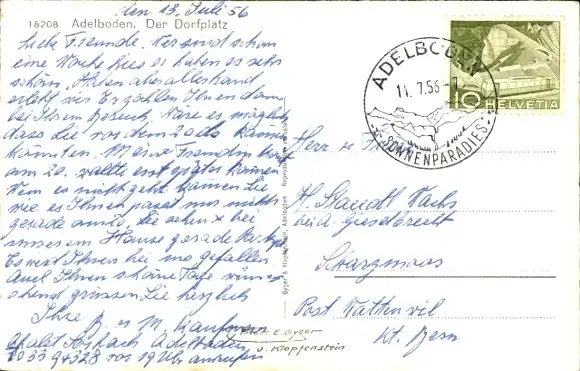 den 13. Juli 56
18208 Adelboden. Der Dorfplatz
Liebe Freunde. Wir sind schon
eine Woche hier es haben es sehr
schön. Haben aber allerhand
erlebt wir Erzählen Ihnen dann
bei Ihrem Besuch. Wäre es möglich
dass Sie vor dem 20. kommen
könnten. Meine Freundin
am 20. wollte erst später kommen
Wenn es nicht geht können Sie
wie es Ihnen passt nur nicht
gerade am Sie sehen x bei
unserem Hause gerade
Es wird Ihnen bei uns gefallen
Auch Ihnen schöne Tage wün-
schend grüssen Sie herzlich
Ihre R. u M. Kaufmann
Chalet Adelboden
033 94328 vor 19 Uhr anrufen
Gyger & Klopfenstein, Adelboden
ADELBODEN
11.7.56
SONNENPARADIES
10 HELVETIA
Herr u
H. Staudt Wachs
bei A. Giesebrecht
Schwarzmoos
Post Wattenwil
Kt. Bern
Phot. E. Gyger
u. Klopfenstein